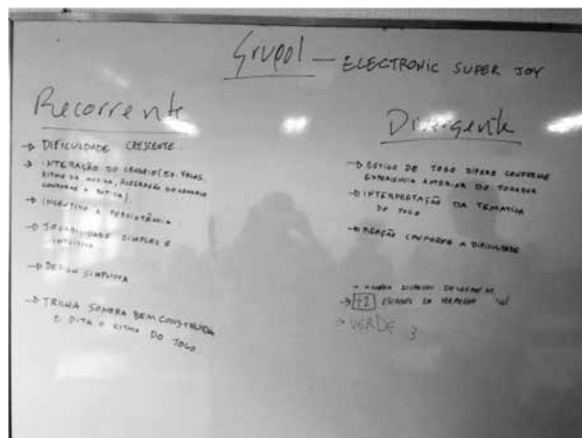 Grupo1 — ELECTRONIC SUPER JOY
Recorrente
→ DIFICULDADE CRESCENTE.
→ INTERAÇÃO DO CENÁRIO (EX: VOZES,
RITMO DA MÚSICA, ALTERAÇÃO DO CENÁRIO
CONFORME A).
→ INCENTIVO À PERSISTÊNCIA
→ JOGABILIDADE SIMPLES E
INTUITIVA
→ DESIGN SIMPLISTA
→ TRILHA SONORA BEM CONSTRUÍDA
E DITA O RITMO DO JOGO.
Divergente
→ ESTILO DE JOGO DIFERE CONFORME
EXPERIÊNCIA ANTERIOR DO JOGADOR
→ INTERPRETAÇÃO DA TEMÁTICA
DO JOGO
→ REAÇÃO CONFORME A DIFICULDADE
→ 42
→ VERDE 3